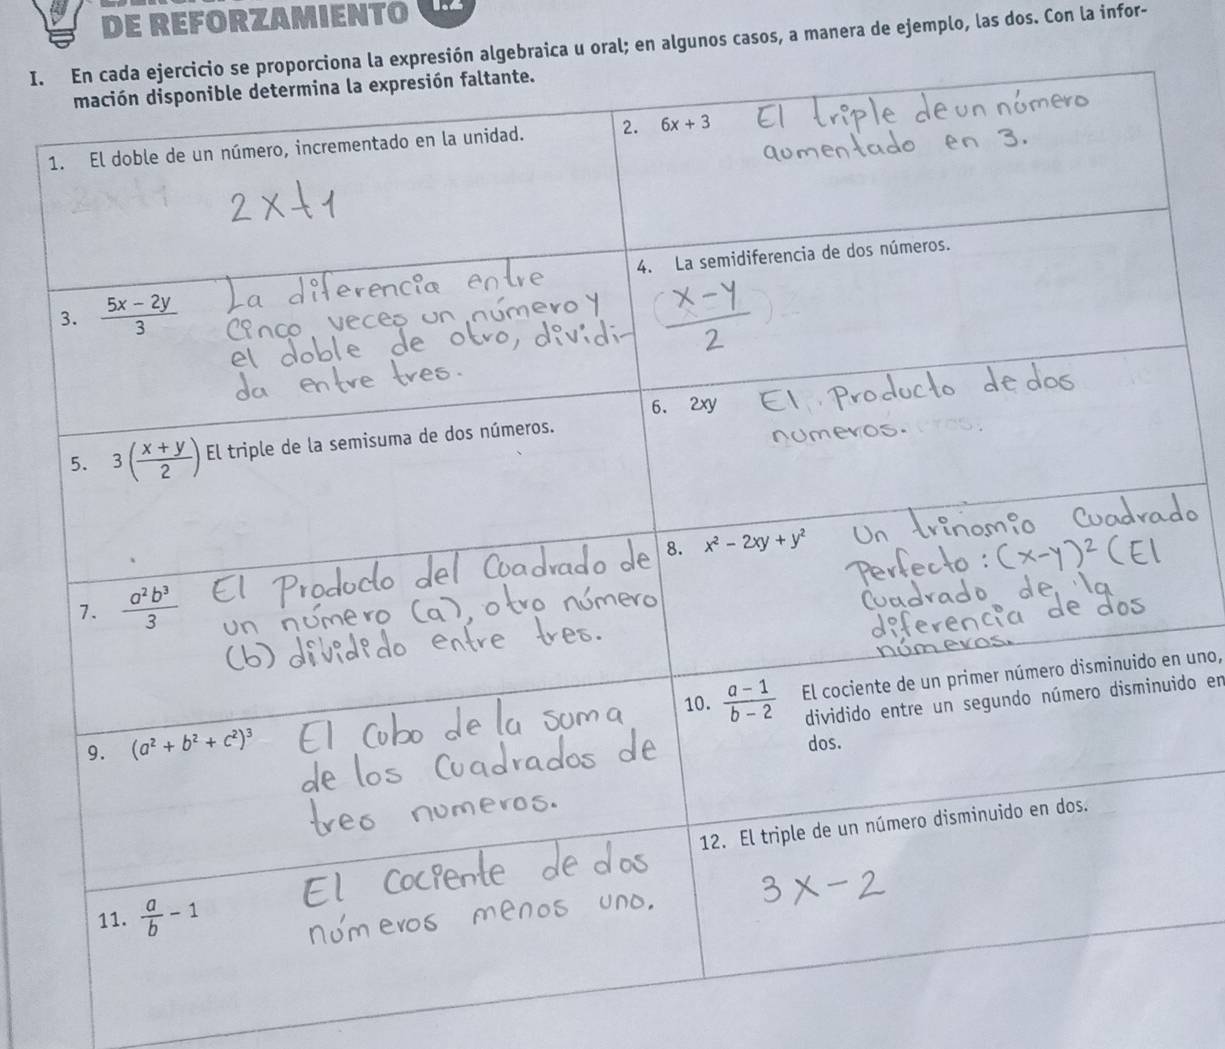 DE REFORZAMIENTO
I. En cada ejercicio se proporciona la expresión algebraica u oral; en algunos casos, a manera de ejemplo, las dos. Con la infor-
mación disponible determina la expresión faltante.
1. El doble de un número, incrementado en la unidad.
2x+1
2. 6x + 3 El triple de un número
aumentado en 3.
3. (5x - 2y)/3 La diferencia entre
cinco veces un número y
el doble de otro, dividi-
da entre tres.
4. La semidiferencia de dos números.
(x-y)/2
5. 3((x + y)/2) El triple de la semisuma de dos números.
6. 2xy El Producto de dos
numeros.
7. a²b³/3 El Producto del Cuadrado de
un número (a), otro número
(b) dividido entre tres.
8. x² - 2xy + y² Un trinomio Cuadrado
Perfecto: (x-y)² (El
Cuadrado de la
diferencia de dos
números.
9. (a² + b² + c²)³ El Cubo de la suma
de los Cuadrados de
tres numeros.
10. (a - 1)/(b - 2) El cociente de un primer número disminuido en uno,
dividido entre un segundo número disminuido en
dos.
11. a/b - 1 El Cociente de dos
números menos uno.
12. El triple de un número disminuido en dos.
3x-2